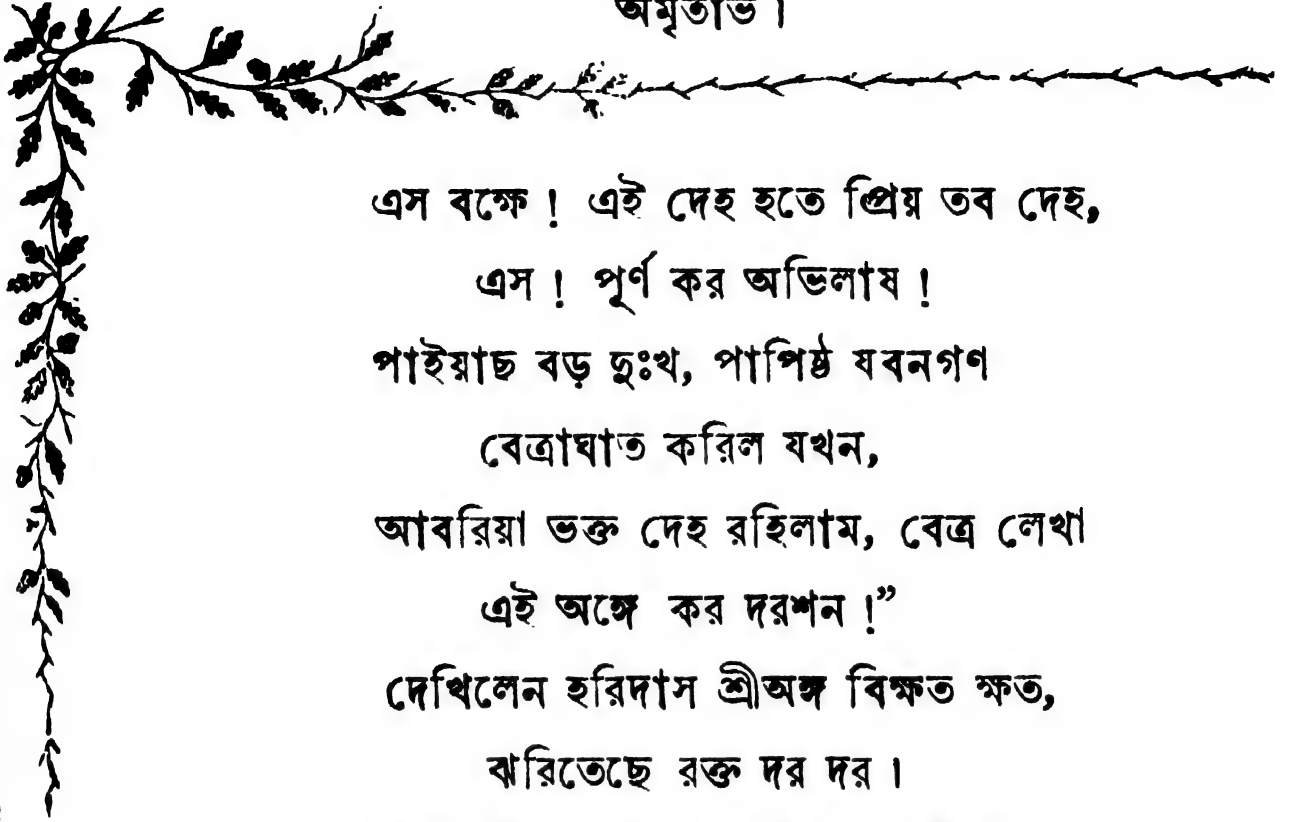 অমৃতাভ।
এস বক্ষে ! এই দেহ হতে প্রিয় তব দেহ,
এস ! পূর্ণ কর অভিলাষ !
পাইয়াছ বড় দুঃখ, পাপিষ্ঠ যবনগণ
বেত্রাঘাত করিল যখন,
আবরিয়া ভক্ত দেহ রহিলাম, বেত্র লেখা
এই অঙ্গে কর দরশন !”
দেখিলেন হরিদাস শ্রীঅঙ্গ বিক্ষত ক্ষত,
ঝরিতেছে রক্ত দর দর ।